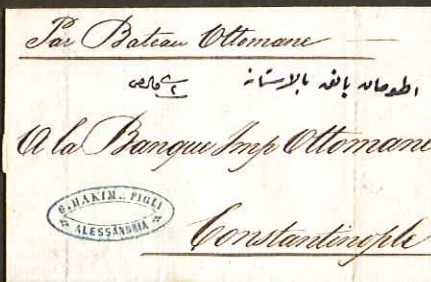 Par Bateau Ottomane
بالاستانه
A la Banque Imp Ottomane
G. HAKIM.. FIGLI
ALESSANDRIA
Constantinople